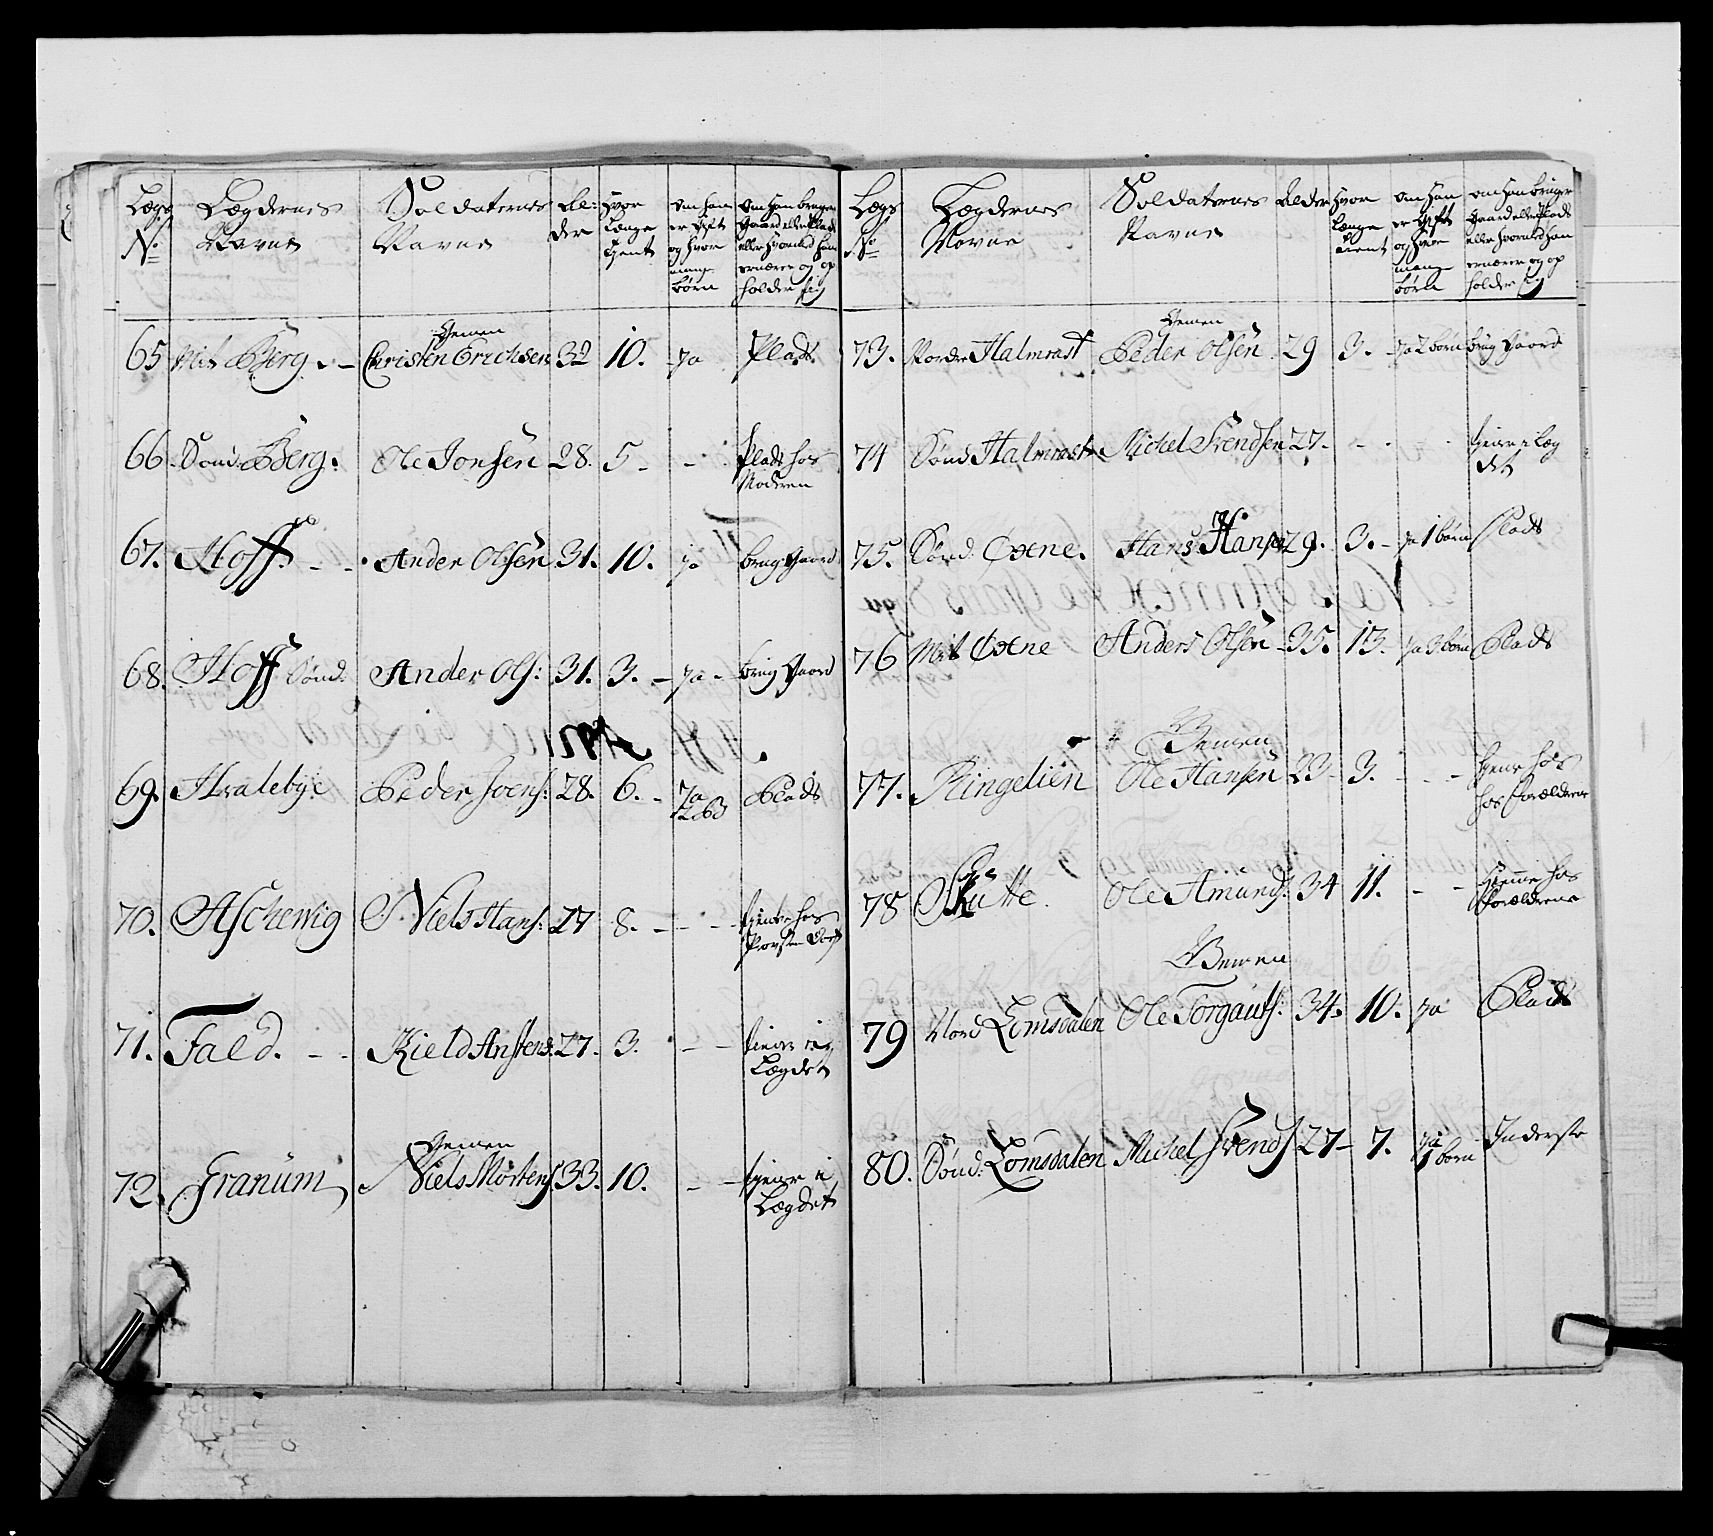 Lægs No
Lægdernes Navne
Soldaternes Navne
Al: der
Hvor Længe tient
om han er Gift og hvor mange børn
om han bruger Gaard eller Plads eller hvormed han ernærer og op holder sig
Gemen
65 Mit Berg. - Christen Erichsen 32 10. - ja Plads
66. Sønd Berg. Ole Jonsen 28. 5 - - - Plads hos
Moderen
67. Hoff. - - Ander Olsen 31. 10. ja brug Gaard
68. Hoff Sønd: Ander Ols: 31. 3. - ja - brug Gaard
69. Hvalebye Peder Joens: 28. 6. - ja
2 B Plads
70. Aschewig Niels Hans: 27 8. - - - tienter hos
Provsten
71. Fald. - - Kield Anstens: 27. 3. - - tiener i
Lægdet
Gemen
72. Granum Niels Mortens: 33. 10. - - tiener i
Lægdet
Lægs No
Lægdernes Navne
Soldaternes Navne
Alder
Hvor Længe tient
om han er Gift og hvor mange børn
om han bruger Gaard eller Plads eller hvormed han ernærer og op holder sig
Gemen
73. Nordre Halmrast Peder Olsen 29 3. - ja 2 børn brug Gaard
74 Sønd Halmrast Michel Svendsen 27. - - - tiener i Læg
det
75. Hans Hansen 29. 3. - ja 1 børn Plads
76 Mit Anders Olsen 35. 13. ja 3 børn Plads
Gemen
77. Ringelien Ole Hansen 23 - 3. - - - hiem hos
hos forældrene
78 Skutte. Ole Amunds: 34 11. - - hiemme hos
Forældrene
Gemen
79 Nord Lomsdalen Ole Torgauts: 34. 10. ja Plads
80. Sønd: Lomsdalen Michel Svends 27 - 7. ja
1 børn Inderste